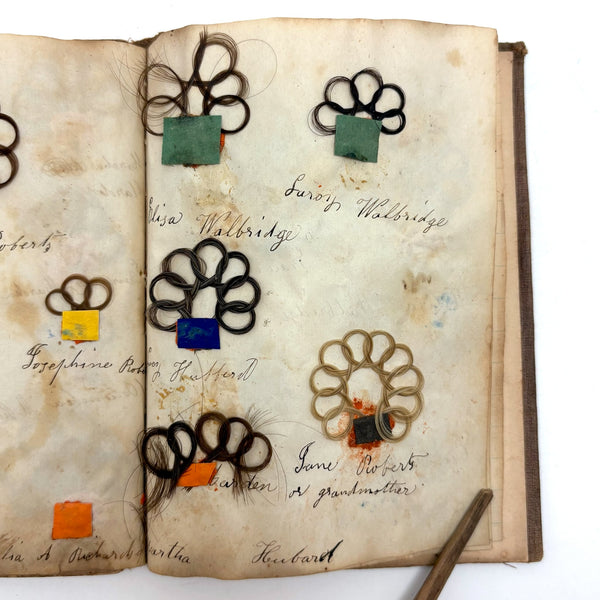 Roberts
Josephine Rob
Richards
Elisa Walbridge
Leroy Walbridge
Hubbard
Jane Roberts
or grandmother
Martha Hubard